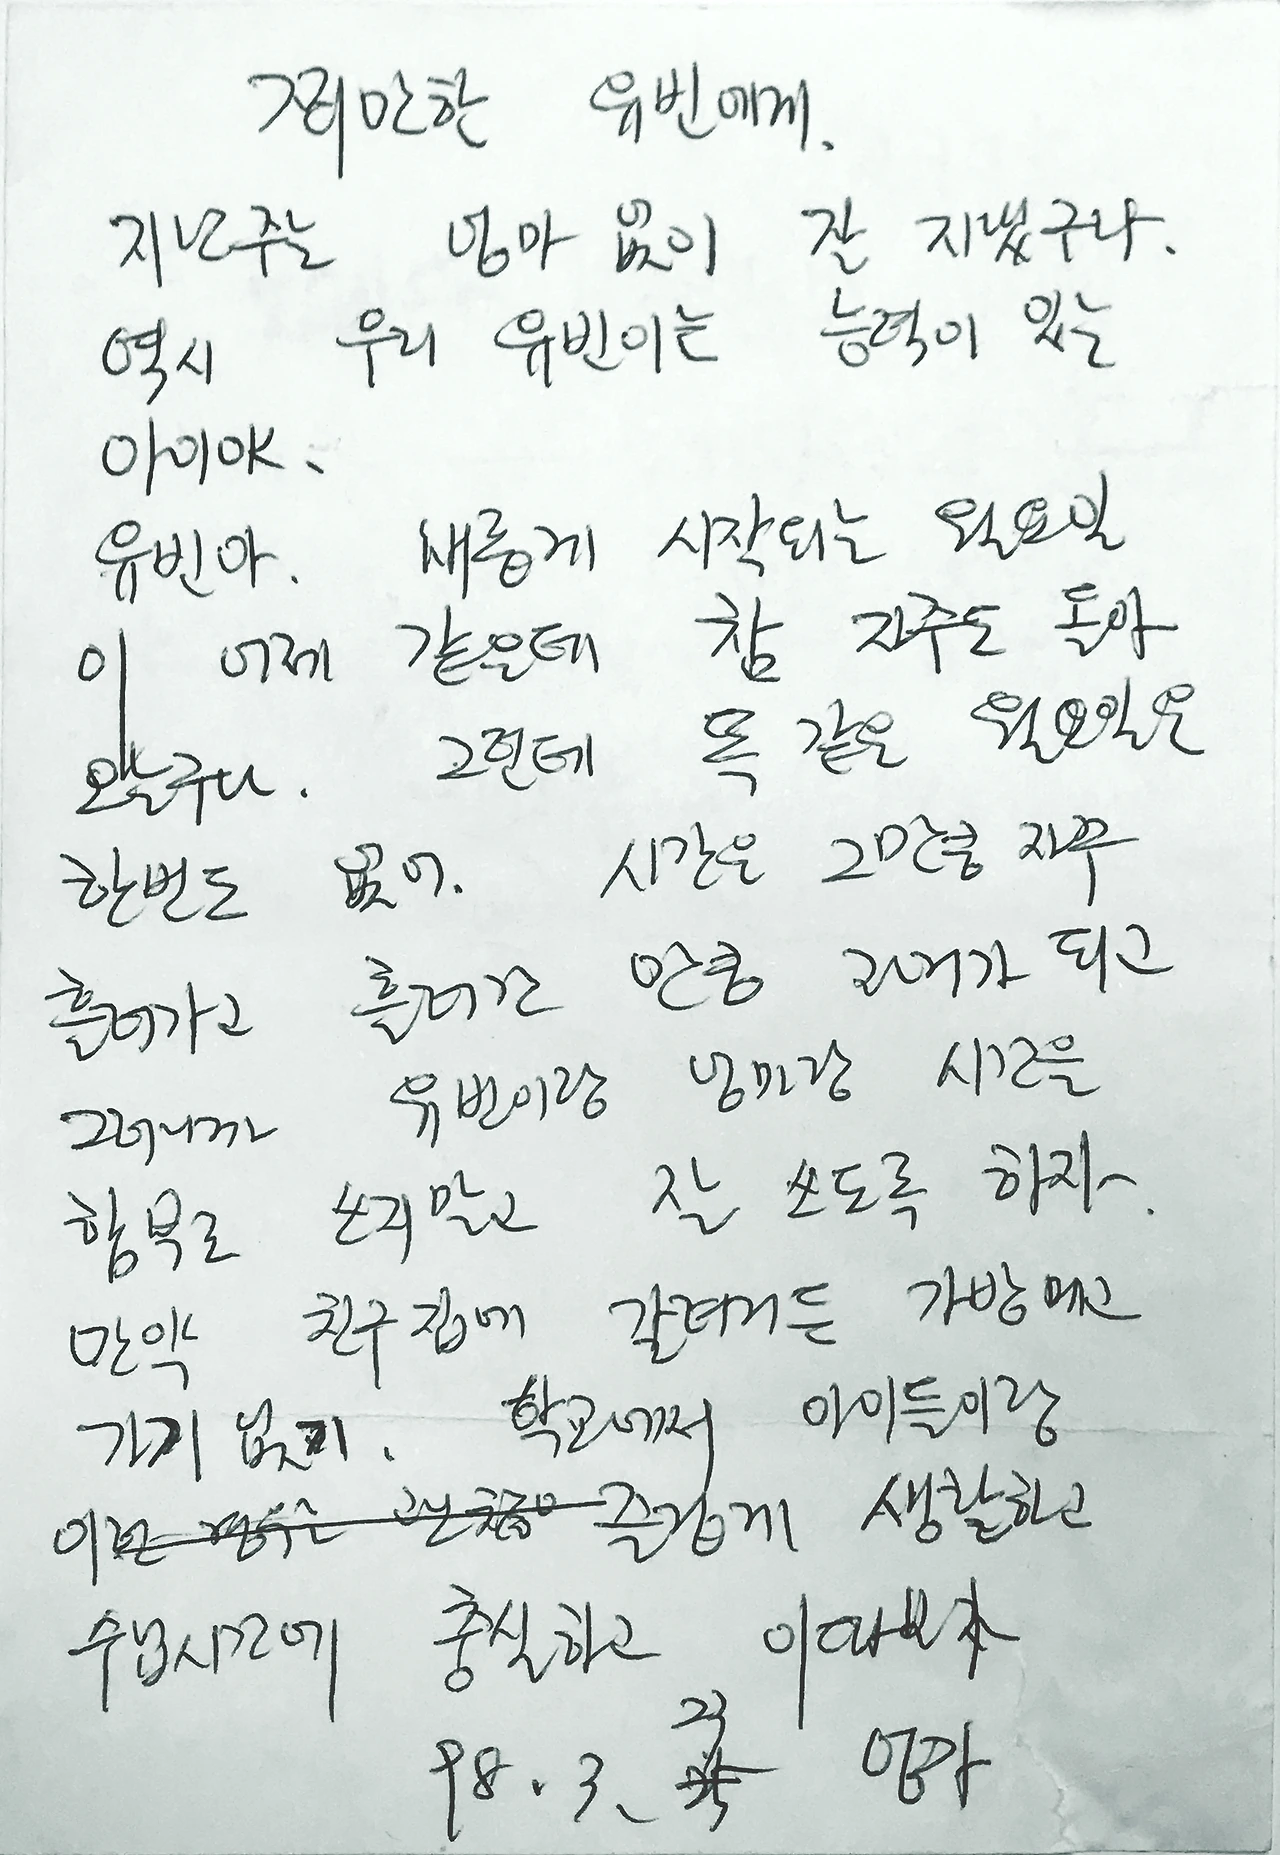 유빈에게.
지난주는 엄마 없이 잘 지냈구나.
역시 우리 유빈이는 능력이 있는
아이야.
유빈아. 새롭게 시작되는 월요일
이 어제 같은데 참 자주도 돌아
오는구나. 그런데 똑같은 월요일은
한번도 없어. 시간은 그만큼 자꾸
흘러가고 흘러간 만큼 과거가 되고
그러니까 유빈이랑 엄마랑 시간을
함부로 쓰지말고 잘 쓰도록 하자~.
만약 친구집에 갈려거든 가방메고
가기 없기. 학교에서 아이들이랑
즐겁게 생활하고
수업시간에 충실하고 이따보자
98. 3. 23 엄마